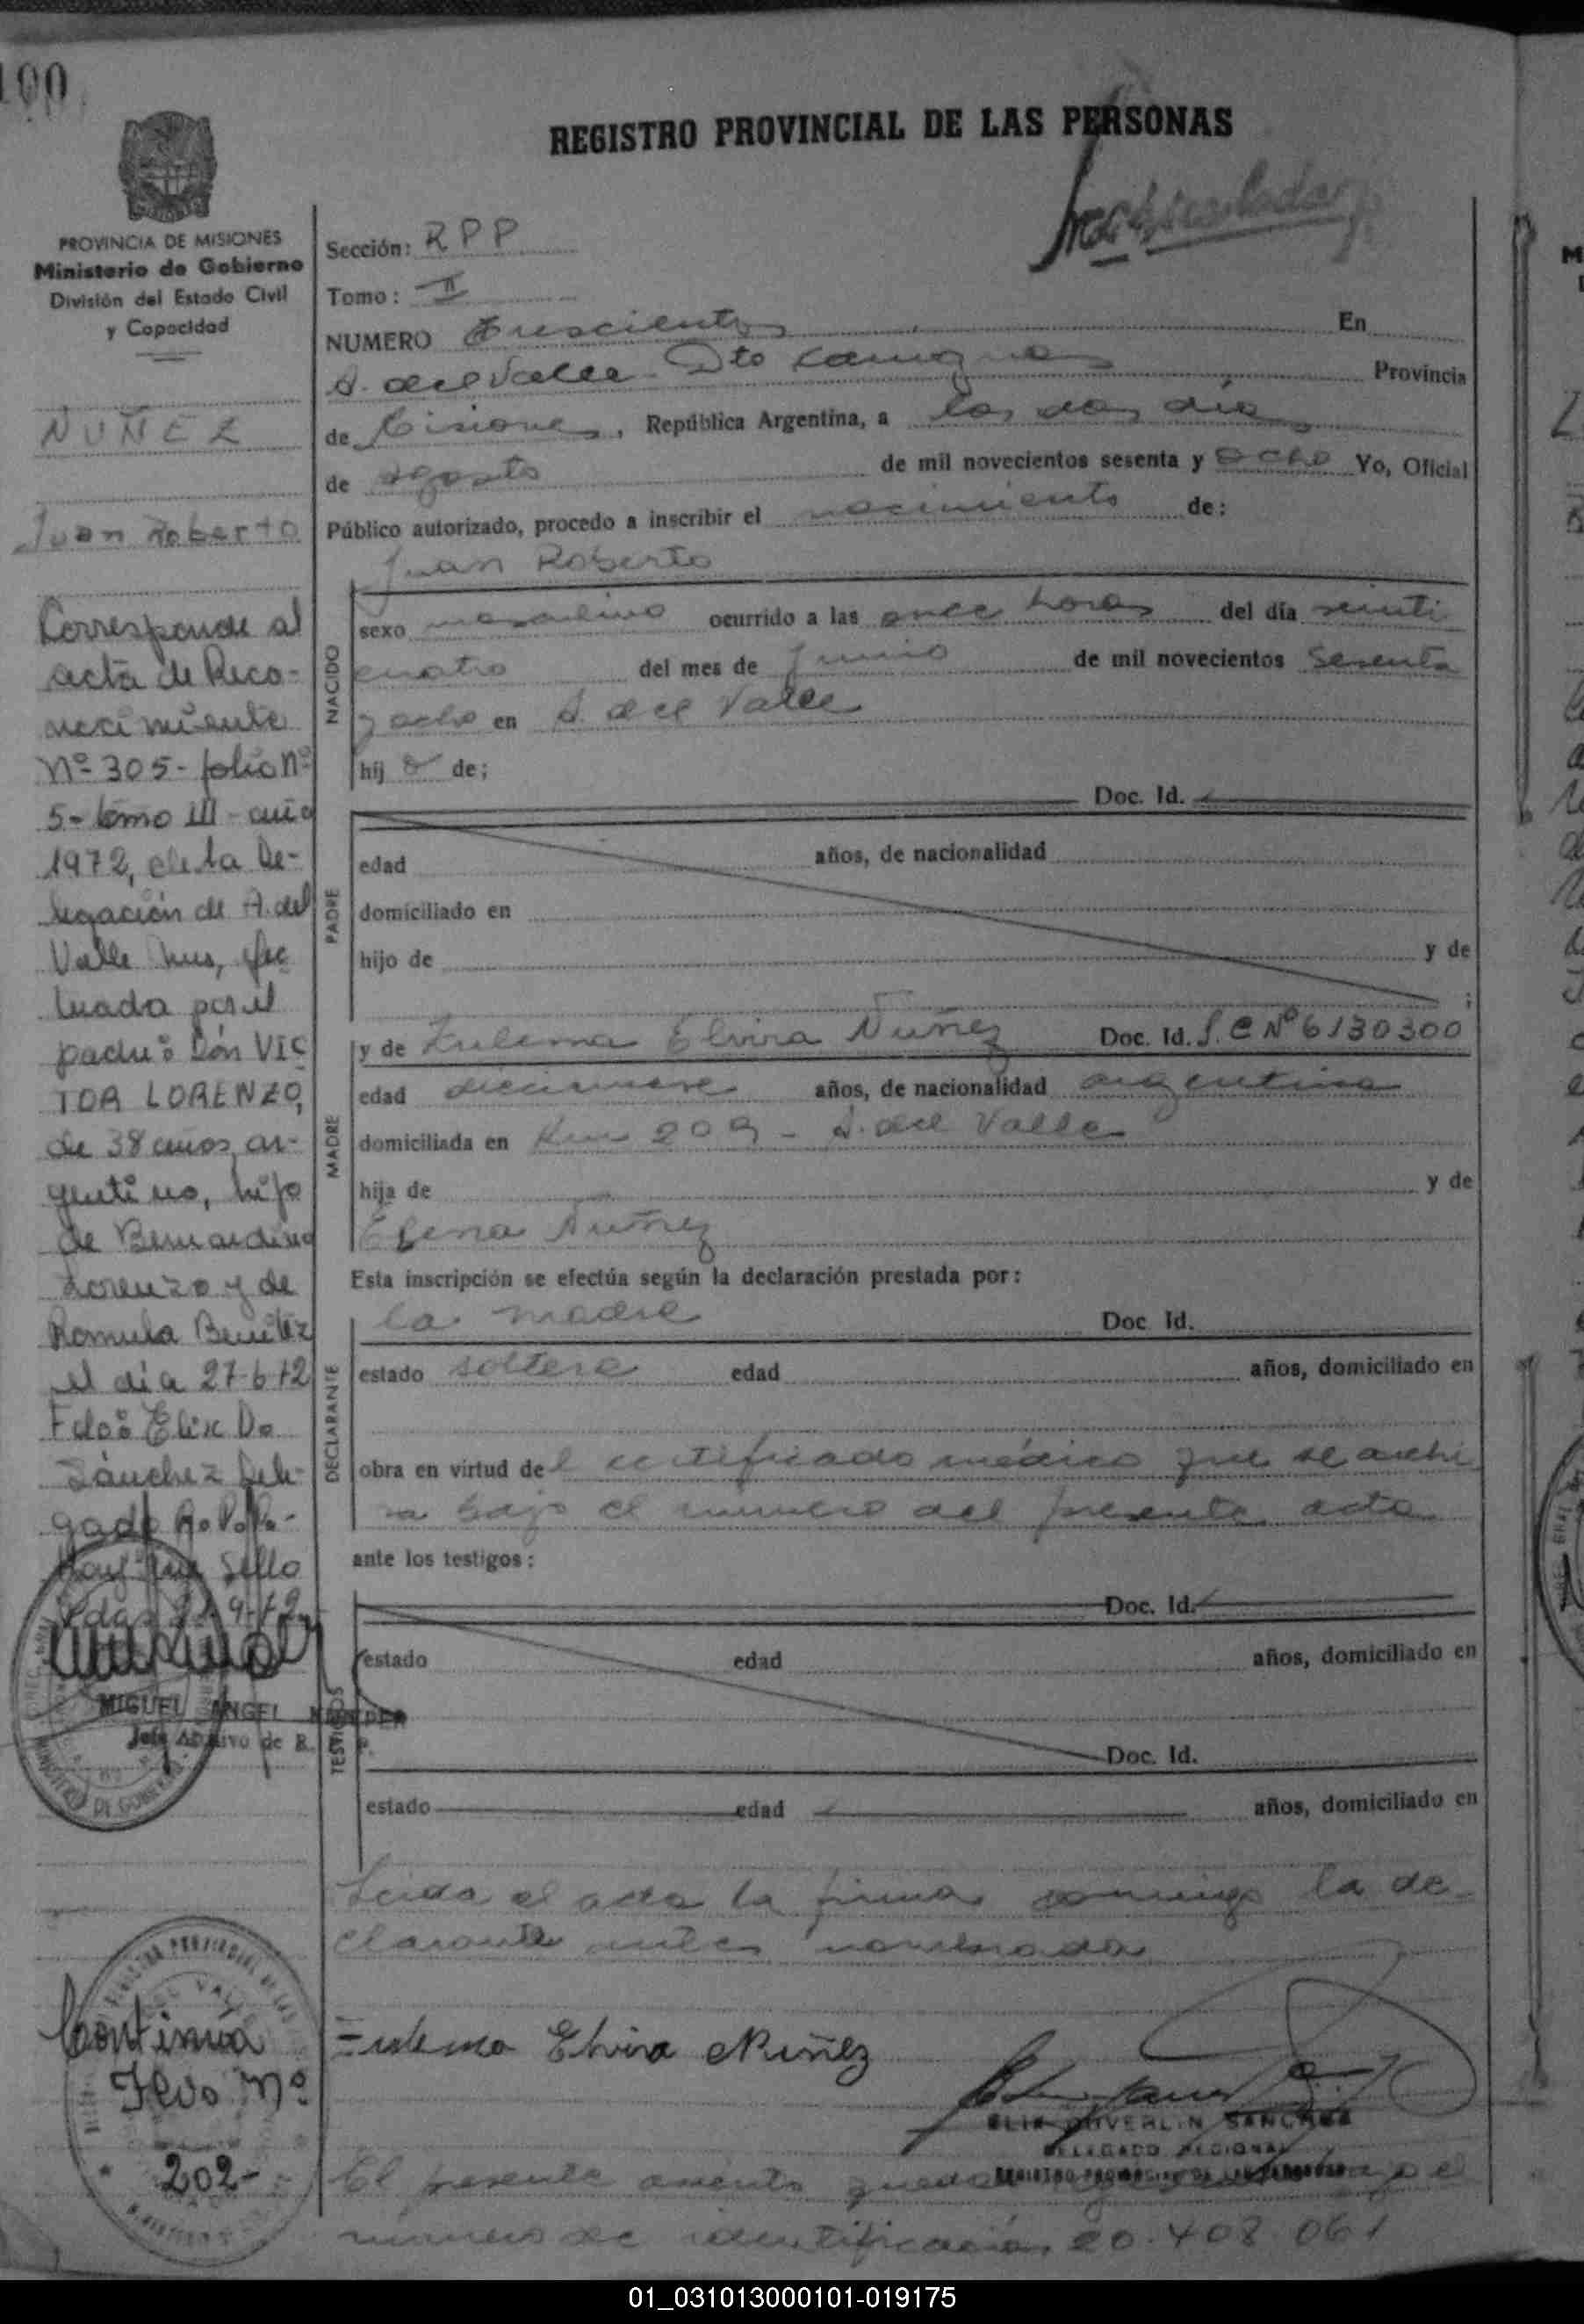 100
REGISTRO PROVINCIAL DE LAS PERSONAS
PROVINCIA DE MISIONES
Ministerio de Gobierno
División del Estado Civil
y Capacidad
NUÑEZ
Juan Roberto
Corresponde al
acta de Reco-
nocimiento
Nº 305- folio nº
5- tomo III- año
1972, de la De-
legación de A. del
Valle Mnes, efec
tuada por el
padre: Don VIC
TOR LORENZO,
de 38 años, ar-
gentino, hijo
de Bernardino
Lorenzo y de
Romula Benitez
el día 27-6-72
Fdo: Elix Do
Sánchez Dele-
gado R.P.P.-
hay un Sello
Pdas 9-72
MIGUEL ANGEL
Jefe Archivo de R. P.
MINISTERIO DE GOBIERNO
Continúa
Flio nº
202-
Sección: RPP
Tomo: II
NUMERO trescientos En
A. del Valle - Dto Cainguas Provincia
de Misiones, República Argentina, a los dos días
de agosto de mil novecientos sesenta y ocho Yo, Oficial
Público autorizado, procedo a inscribir el nacimiento de:
Juan Roberto
NACIDO
sexo masculino ocurrido a las once horas del día veinti
cuatro del mes de Junio de mil novecientos sesenta
y ocho en A. del Valle
hij o de;
PADRE
Doc. Id.
edad años, de nacionalidad
domiciliado en
hijo de y de
;
MADRE
y de Zulema Elvira Nuñez Doc. Id. L.C Nº 6130300
edad diecinueve años, de nacionalidad argentina
domiciliada en Km 209 - A. del Valle
hija de y de
Elena Nuñez
Esta inscripción se efectúa según la declaración prestada por:
DECLARANTE
la madre Doc. Id.
estado soltera edad años, domiciliado en
obra en virtud del certificado médico que se archi
va bajo el numero del presente acta
ante los testigos:
TESTIGOS
Doc. Id.
estado edad años, domiciliado en
Doc. Id.
estado edad años, domiciliado en
Leida el acta la firma conmigo la de-
clarante antes nombrada
Zulema Elvira Nuñez
ELIX DUVERLIN SANCHEZ
DELEGADO REGIONAL
REGISTRO PROVINCIAL DE LAS PERSONAS
El presente asiento queda bajo el
numero de identificación 20.408.061
01_031013000101-019175